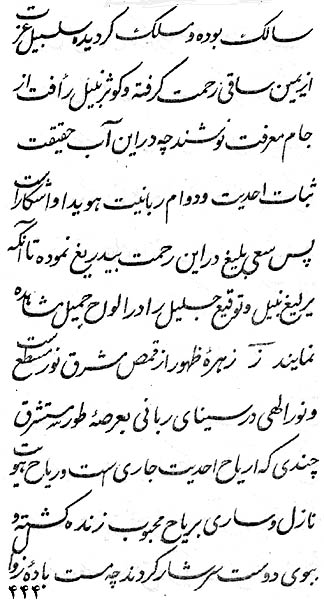 سالک بوده و سلک گردیده سلسبیل عزت
از یمین ساقی رحمت گرفته و کوثر نبیل رأفت از
جام معرفت نوشند چه در این آب حقیقت
ثبات احدیت و دوام ربانیت هویدا و اشکار است
پس سعی بلیغ در این رحمت بیدریغ نموده تا آنکه
یرلیغ نبیل و توقیع جلیل را در الواح جمیل مشاهده
نمایند ز زهرهٔ ظهور از قمص مشرق نور مسطع است
و نور الهی در سینای ربانی بعرصهٔ طور مستشرق
چندی که اریاح احدیت جاری است و ریاح هویت
نازل و ساری بریاح محبوب زنده گشته و
ببوی دوست سرشار گردند چه مست بادهٔ زوال
۴۴۴